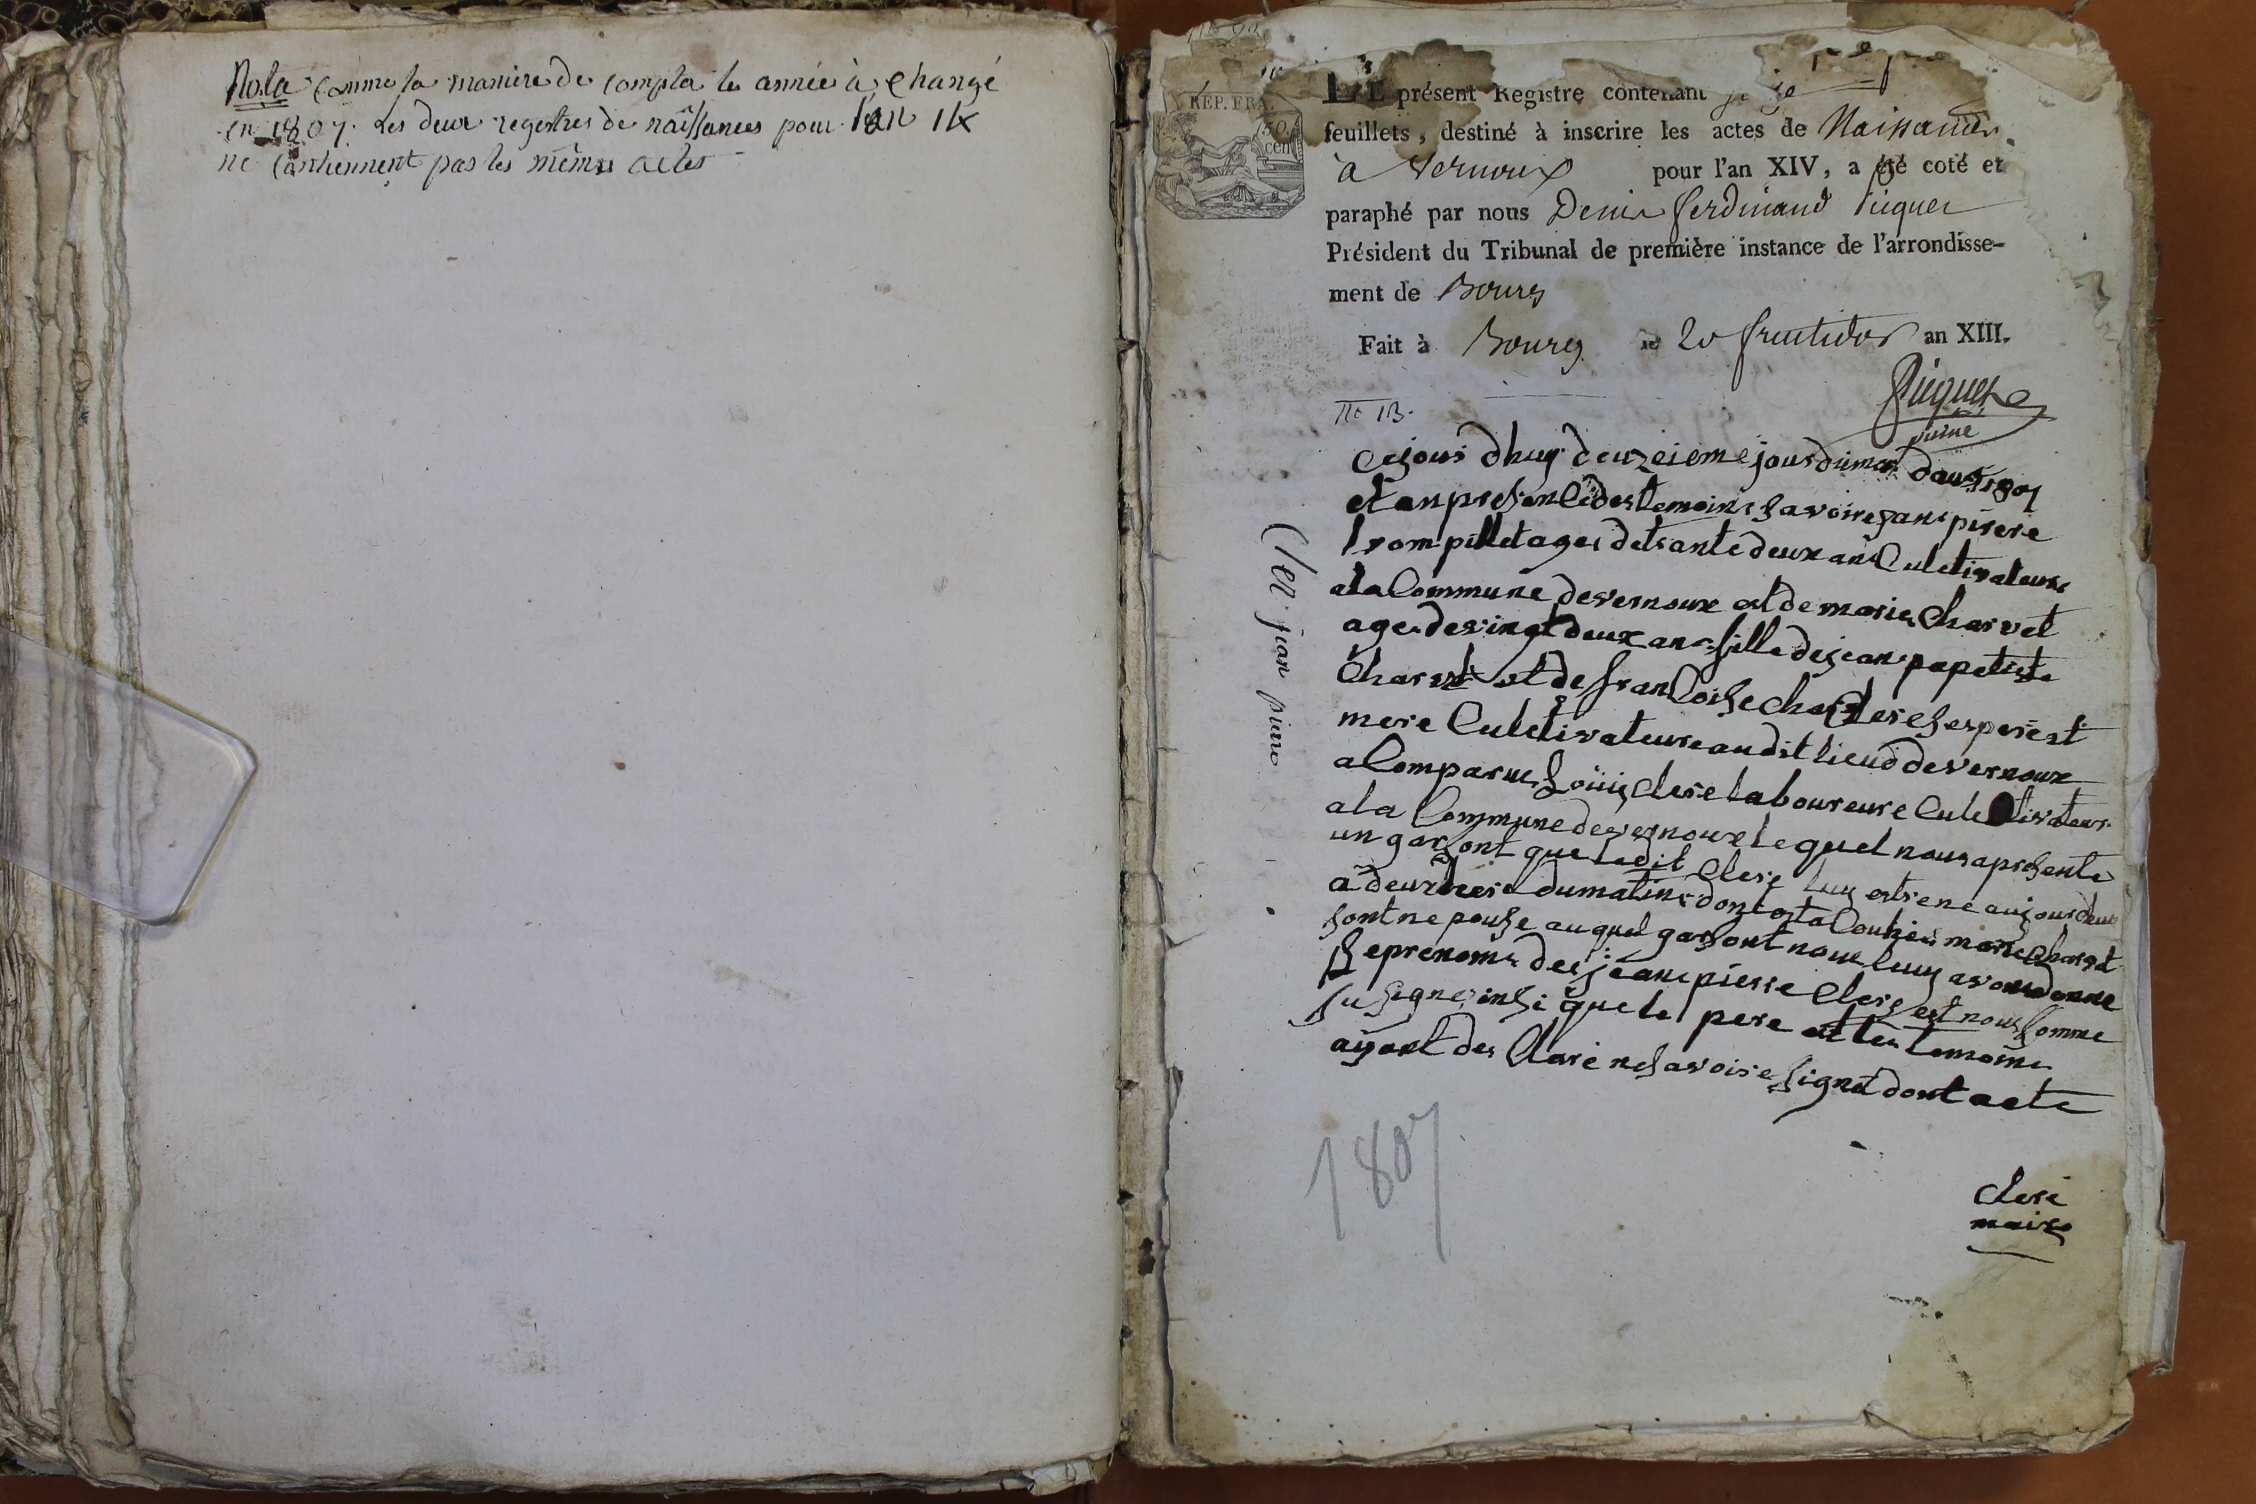 Nota comme la maniere de compta les année à changé
en 1807. Les deux regestres de naîssances pour l'an IX
ne contiennent pas les mêmes actes
REP. FRA.
50
cen
LE présent Registre contenant
feuillets, destiné à inscrire les actes de Naissances
à Vernoux pour l'an XIV, a été coté et
paraphé par nous Denis ferdinand
Président du Tribunal de première instance de l'arrondisse-
ment de Bourg
Fait à Bourg le 20 fructidor an XIII.
no 13.
Clerc jean pierre
Cejour dhuy deuzeieme jour du mois daut 1807
et an presence des temoins savoire jans pierere
age detrante deux ans Culetivateure
ala Commune devernoux et de marie Charvet
age devingt deux ans fille de jean papetiste
Charvet et de franCoise ses pere et
mere Culetivateure au dit lieud de vernoux
a Comparue Loüis clere laboureure Culetivateur
ala Commune devernoux le quel nous a presente
un garsont que ledit Clere luy
a deux here du matins dont
sont ne pouse au quel garsont nous luy avons donne
le prenoms de jeanc pierre Clere et nous somme
su signe insi que le pere et les temoins
ayant des Clare nesavoire signet dont acte
1807
clere
maire